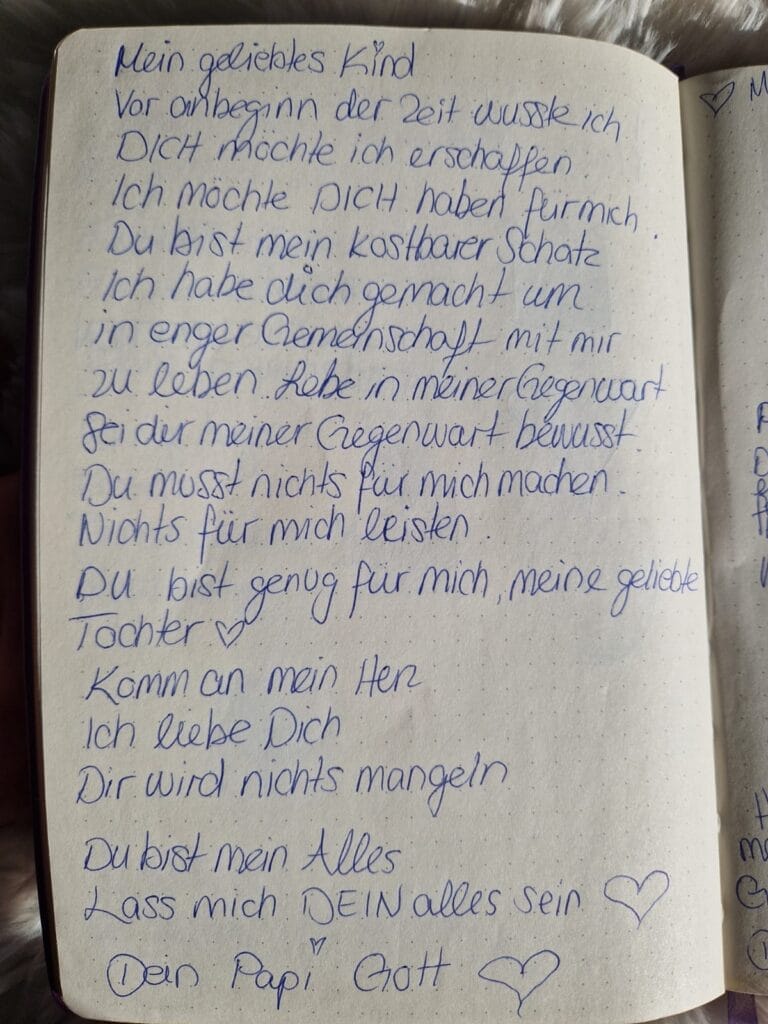 Mein geliebtes Kind
Vor anbeginn der Zeit wusste ich
DICH möchte ich erschaffen.
Ich möchte DICH haben für mich.
Du bist mein kostbarer Schatz
Ich habe dich gemacht um
in enger Gemeinschaft mit mir
zu leben. Lebe in meiner Gegenwart
Sei dir meiner Gegenwart bewusst.
Du musst nichts für mich machen.
Nichts für mich leisten.
DU bist genug für mich, meine geliebte
Tochter ♡
Komm an mein Herz
Ich liebe Dich
Dir wird nichts mangeln
Du bist mein Alles
Lass mich DEIN alles sein ♡
Dein Papi Gott ♡